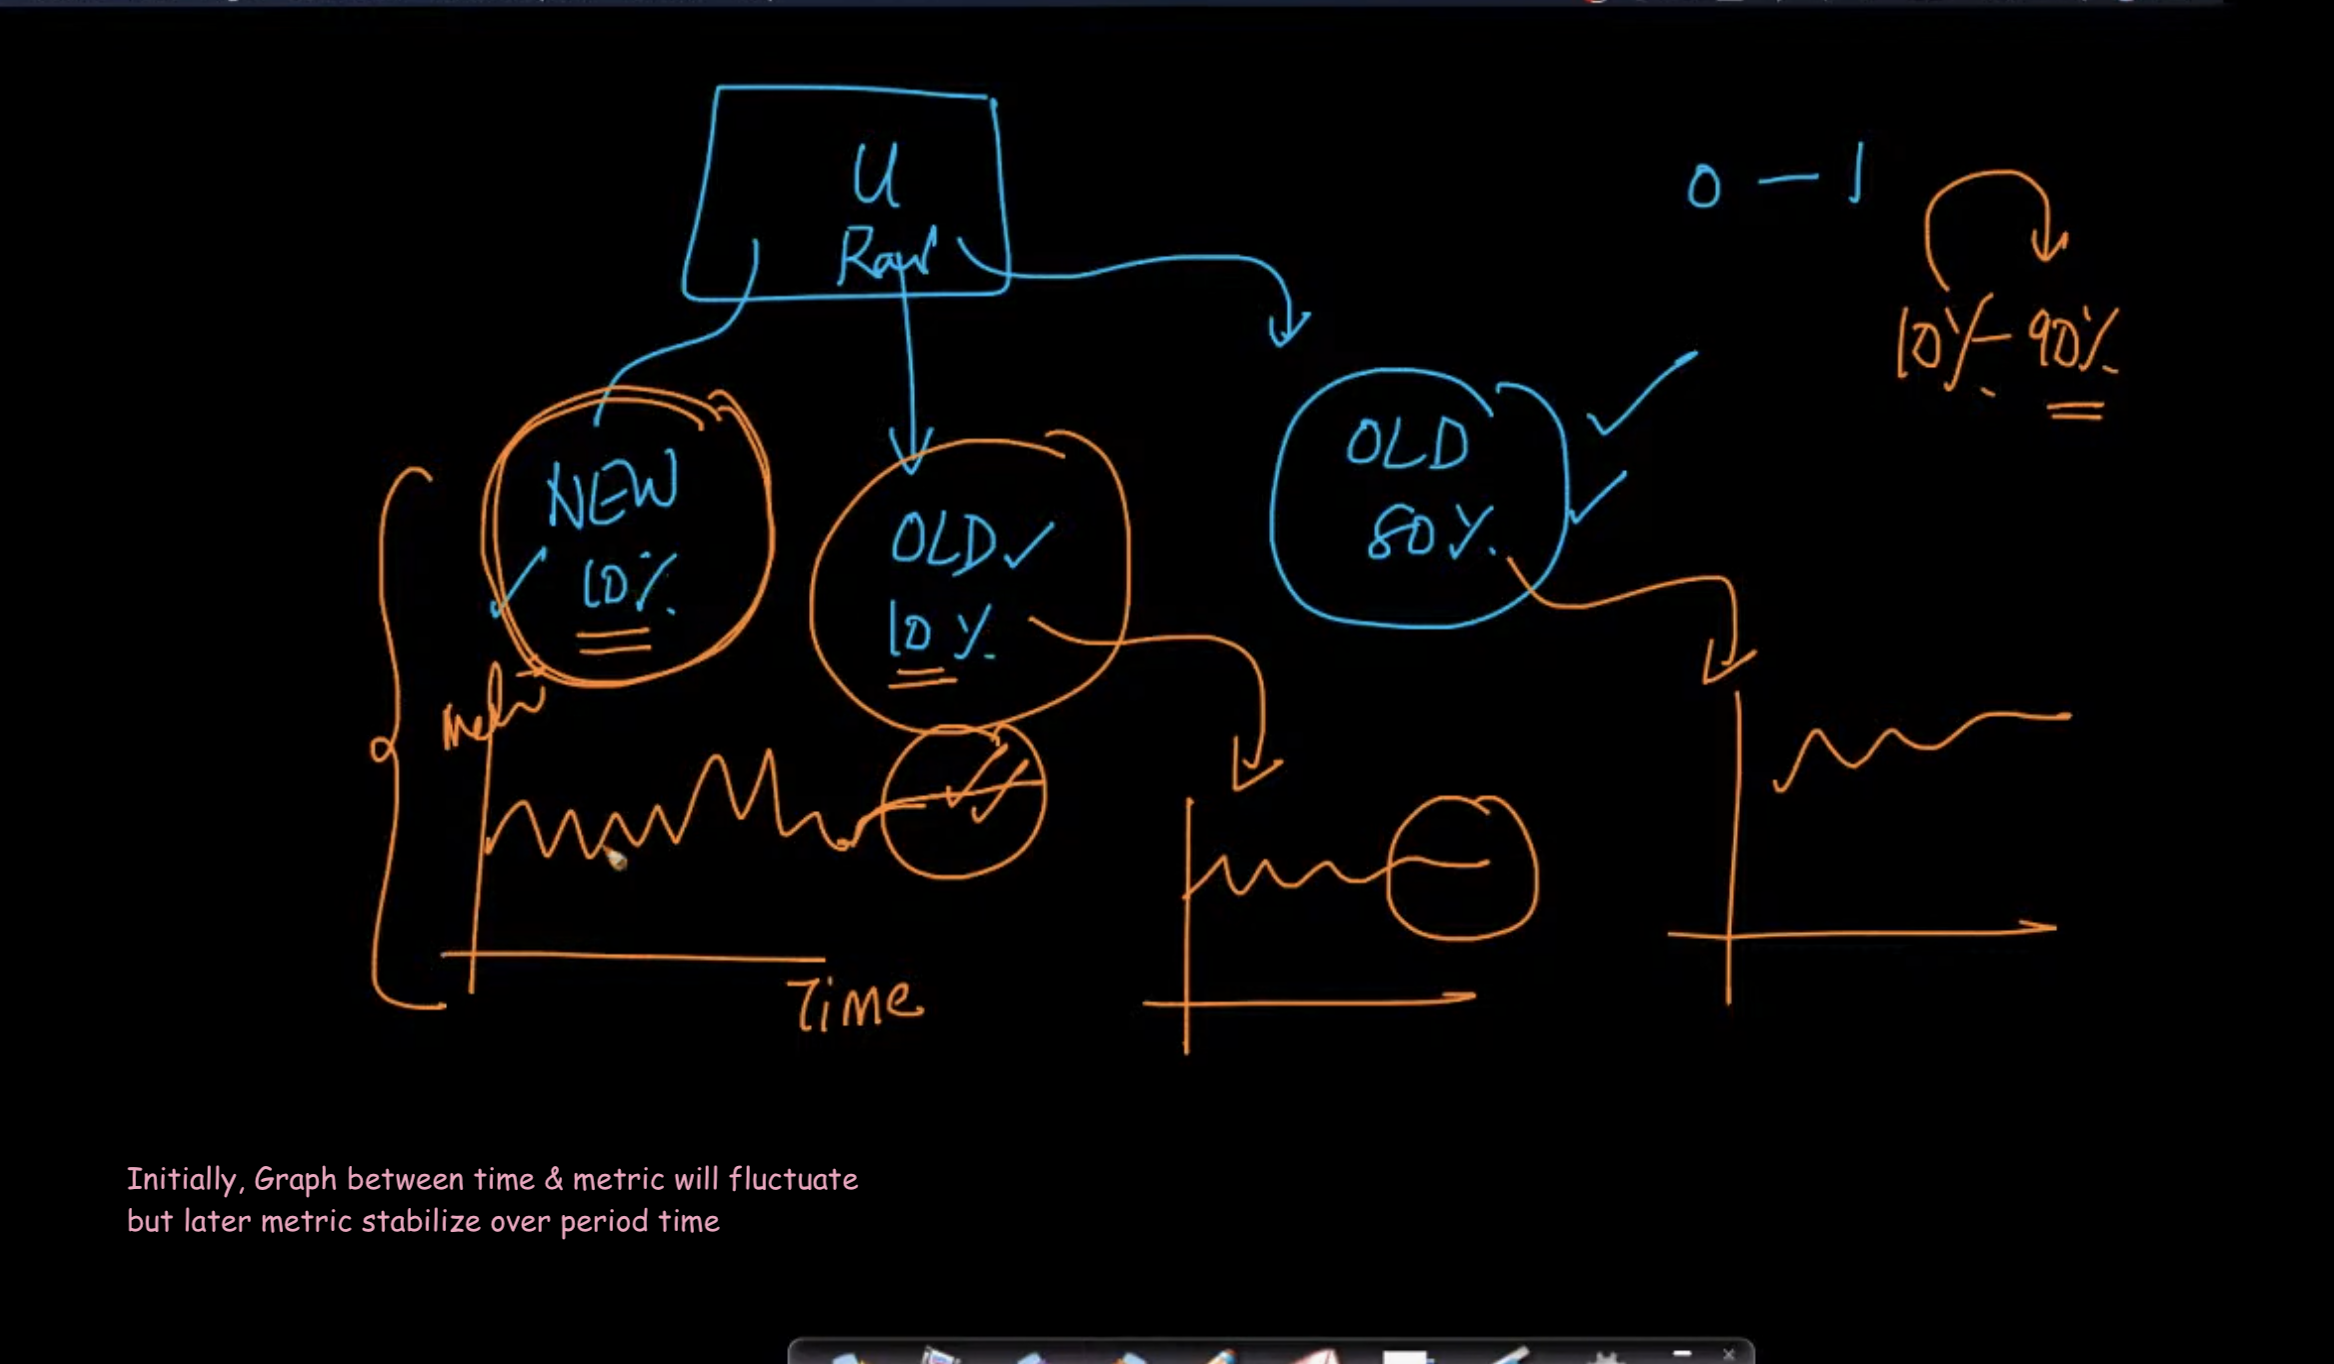 U
Rand
0 - 1
10% - 90%
NEW
10%
OLD
10%
OLD
80%
Metric
Time
Initially, Graph between time & metric will fluctuate
but later metric stabilize over period time